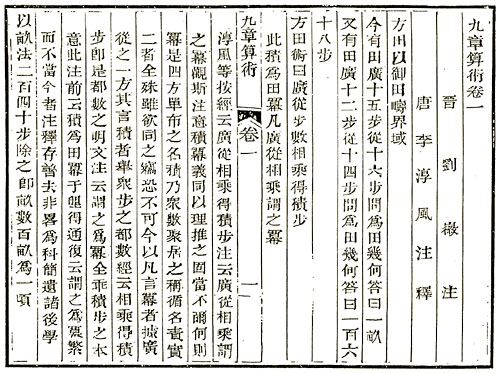 九章算術卷一
晉 劉徽 注
唐 李淳風 注釋
方田以御田疇界域
今有田廣十五步從十六步問爲田幾何答曰一畝
又有田廣十二步從十四步問爲田幾何答曰一百六
十八步
方田術曰廣從步數相乘得積步
此積爲田冪凡廣從相乘謂之冪
九章算術 卷一 一
淳風等按經云廣從相乘得積步注云廣從相乘謂
之冪觀斯注意積冪義同以理推之固當不爾何則
冪是四方單布之名積乃衆數聚居之稱循名責實
二者全殊雖欲同之竊恐不可今以凡言冪者據廣
從之一方其言積者舉衆步之都數經云相乘得積
步即是都數之明文注云謂之爲冪全乖積步之本
意此注前云積爲田冪于理得通復云謂之爲冪繁
而不當今者注釋存善去非畧爲科簡遺諸後學
以畝法二百四十步除之即畝數百畝爲一頃